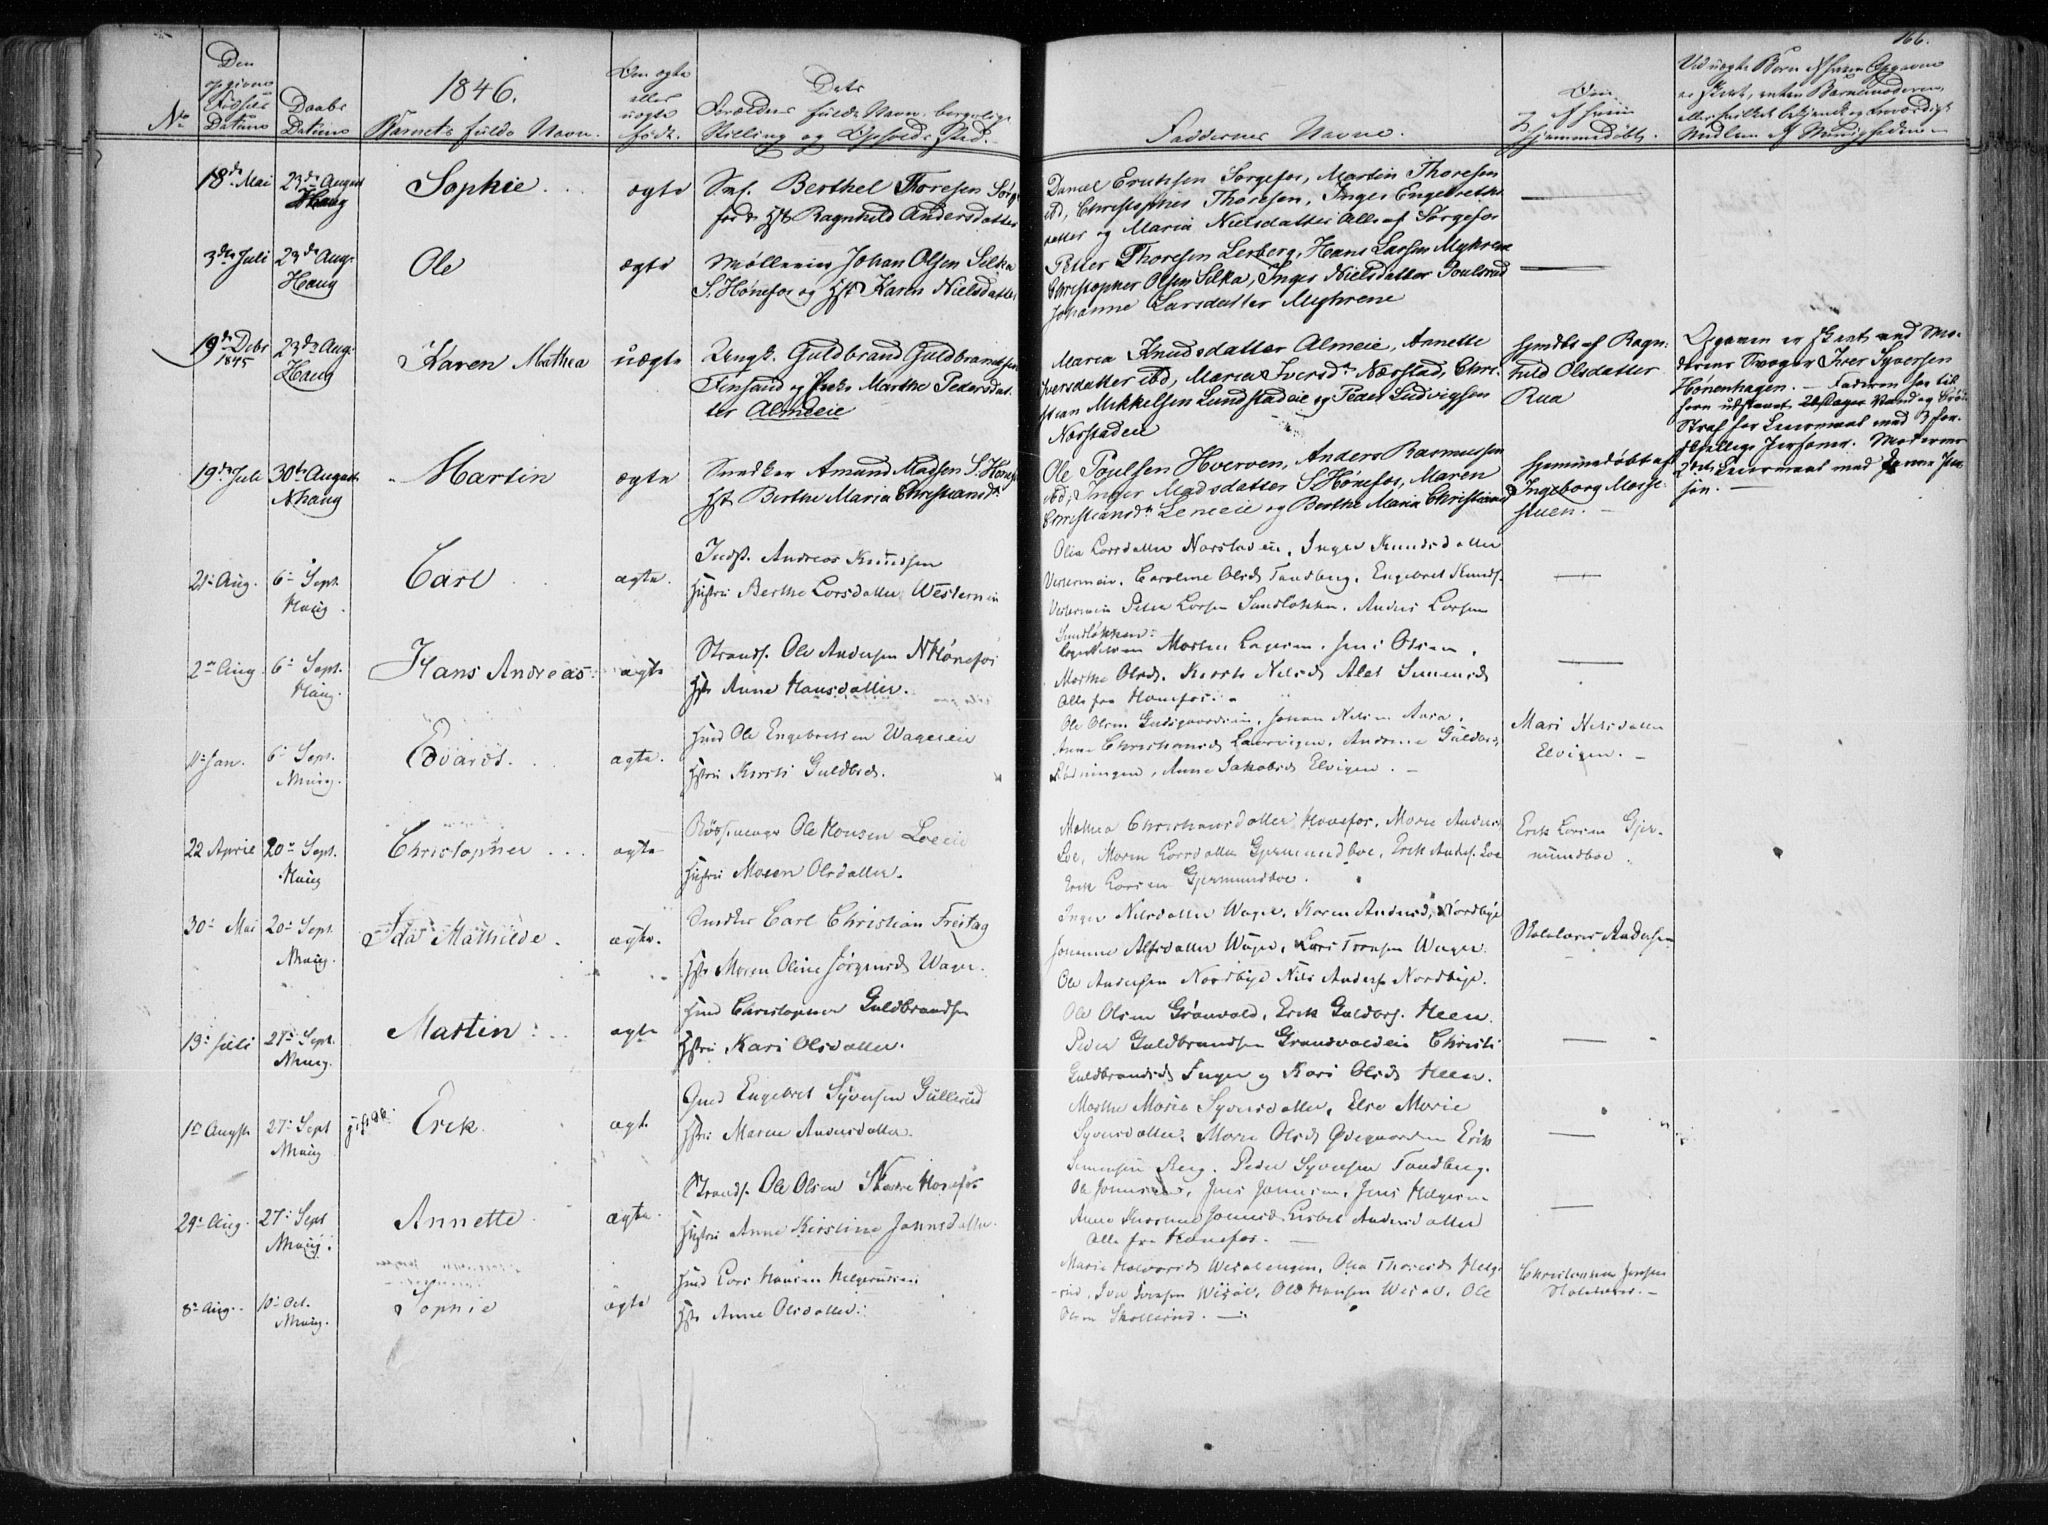 166.
Den opgivne Fødsels Datum
Daabs Datum
1846.
Barnets fulde Navn.
Om ægte eller uægte født.
Dets
Forældres fulde Navn, borgerlige
Stilling og Opholds Sted.
Faddernes Navne.
Om og af hvem hjemmedøbt.
Ved uægte Børn af hvem Opgaven
er skeet, enten Barnemoderen,
eller hvilket bekjendt og troværdigt
Medlem af Menigheden
No
18de Mai
23de August
Haug
Sophie
ægte
Berthel Thoresen Sørge-
fos Hst Ragnhild Andersdatter
Daniel Eriksen Sørgefos, Martin Thoresen
ibd, Christopher Thoresen, Inger Engebrets-
datter og Maria Nielsdatter Alle af Sørgefos
3die Juli
23de Aug.
Haug
Ole
ægte
Møllersv Johan Olsen Silka
S. Hønefos og Hst Karen Nielsdatter
Peter Thoresen Lerberg, Hans Larsen Myhrene
Christopher Olsen Silka, Inger Nielsdatter Poulsrud
Johanne Larsdatter Myhrene
19de Debr 1845
23de Aug.
Haug
Karen Mathea
uægte
Ungk. Guldbrand Guldbrandsen
Finsand og Pige Marthe Pedersdat-
ter Almeie
Maria Knudsdatter Almeie, Annette
Iversdatter ibd, Maria Iversd. Nærstad, Chri-
stian Mikkelsen Lundstadeie og Peder Ludvigsen
Nærstadeie
hjmdbt af Ragn-
hild Olsdatter
Rua
Opgaven er skeet ved Mo-
derens Svoger Iver Syversen
Hønenhagen. – Faderen har til-
forn udstaaet Vand og Brød
Straf for Leiermaal med 3 for-
skjellige Personer. Moderens
2det Leiermaal med
19de Juli
30te August
N haug
Martin
ægte
Snedker Amund Madsen S. Hønefos
Hst Berthe Maria Christiansd.
Ole Paulsen Hverven, Anders Rasmussen
ibd, Inger Madsdatter S Hønefos, Maren
Christiansd. Lemeie og Berthe Maria Christiansd
hjemmedøbt af
Ingeborg Moss-
stuen. –
21 Aug.
6 Sept.
Haug.
Carl
ægte.
Indst. Andreas Knudsen
Hustru Berthe Larsdatter Westernein
Olia Larsdatter Narstadeie, Inger Knudsdatter
Vesterneie, Caroline Olsd. Tandberg, Engebret Knuds.
Vesternein Peter Larsen Sandløkken. Anders Larsen
Sandløkken.
2 Aug
6 Sept.
Haug.
Hans Andreas
ægte
Strands. Ole Andersen N Hønefos
Hst Anne Hansdatter.
Morten Lagesen, Jens Olsen,
Marthe Olsd. Kirsti Nilsd. Alet Simensd
Alle fra Hønefos.
11 Jan.
6 Sept.
N haug.
Edvard.
ægte.
Huusm Ole Engebretsen Wagereie
Hustru Kirsti Guldbrd.
Ole Olsen Gudsgaardseie, Johan Nilsen Aasa,
Anne Christiansd. Laarvigen, Andrine Guldbrd,
Anne Jakobsd Elvigen. –
Mari Nilsdatter
Elvigen. –
22 April
20 Sept.
Haug
Christopher
ægte
Ole Hansen Loeeie
Hustru Maren Olsdatter.
Mathea Christiansdatter Hønefos, Marie Andersd
Loe, Maren Larsdatter Gjermundboe, Erik Anders. Loe
Erik Larsen Gjermundboe.
Erik Larsen Gjer-
mundboe.
30 Mai
20 Sept.
N haug.
Ida Mathilde.
ægte.
Snedker Carl Christian Freitag
Hst Maren Oline Jørgensd Wager.
Inger Nilsdatter Wager, Karen Andersd. Nordbye
Johanne Alfsdatter Wager, Lars Wager.
Ole Andersen Nordbye Nils Anders. Nordbye.
Andersen
19 Juli
27 Sept.
N haug.
Martin
ægte
Huusm Christopher Guldbrandsen
Hustru Kari Olsdatter.
Ole Olsen Grønvold, Erik Guldbrs. Heen.
Peder Guldbrandsen Grønvoldeie Christi
Guldbrandsd Inger og Kari Olsd Heen.
1 August
27 Sept
N haug
Erik.
ægt.
Gmd Engebret Syversen Gullerud
Hustru Maren Andersdatter.
Marthe Maria Syversdatter, Else Marie
Syversdatter. Maren Olsd. Ødegaarden Erik
Simensen Berg. Peder Syversen Tandberg.
29 Aug.
27 Sept
N haug.
Annette
ægte.
Strands. Ole Olsen Nordre Hønefos
Hustru Anne Kirstine Johnsdatter.
Ole Johnsen, Jens Johnsen, Jens Helgesen
Anne Kirstine Johnsd Lisbet Andersdatter
Alle fra Hønefos. –
8 Aug.
10 Oct.
N haug.
Sophie
ægte
Huusm Lars Hansen Helgerudeie
Hst Anne Olsdatter.
Marie Halvorsd Wesølengen, Olia Thoresd Helge-
rud, Iver Iversen Wesøl, Ole Hansen Wesøl. Ole
Olsen Skollerud. –
Christopher Jensen